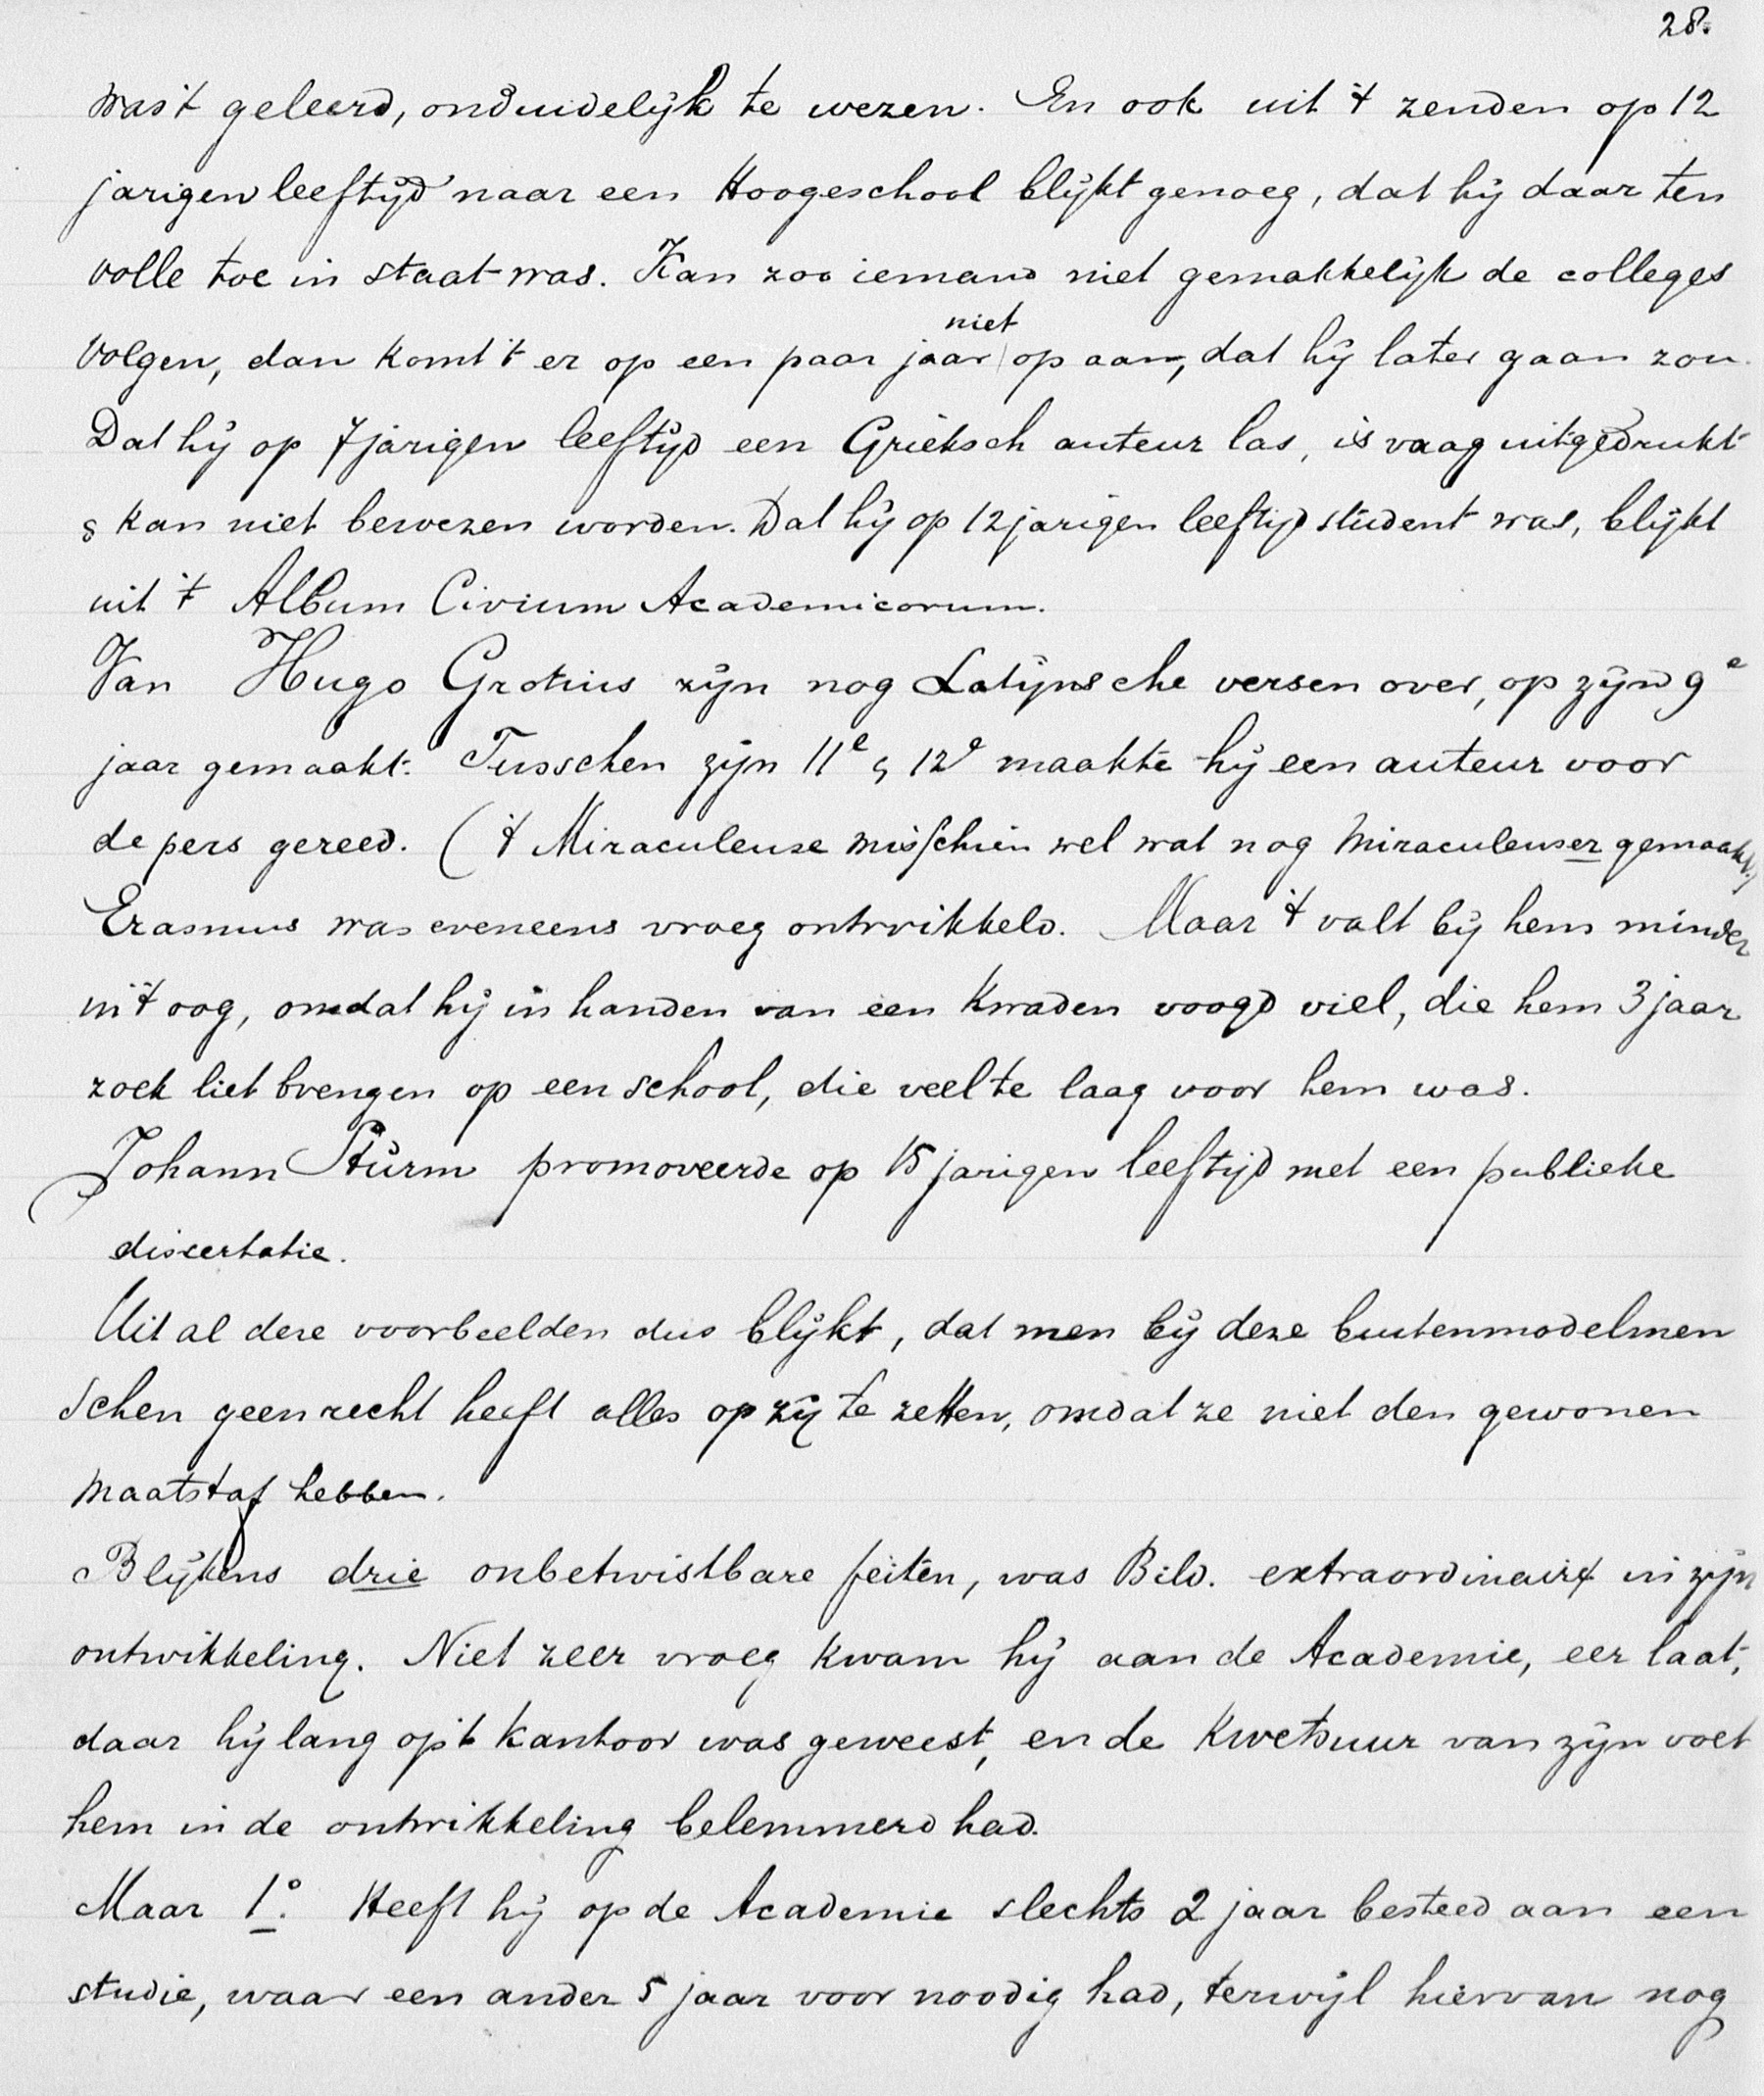 28.
was 't geleerd, onduidelijk te wezen. En ook uit 't zenden op 12
jarigen leeftijd naar een Hoogeschool blijkt genoeg, dat hij daar ten
volle toe in staat was. Kan zoo iemand niet gemakkelijk de colleges
niet
volgen, dan komt 't er op een paar jaar op aan, dat hij later gaan zou.
Dat hij op 7jarigen leeftijd een Grieksch auteur las, is vaag uitgedrukt
& kan niet bewezen worden. Dat hij op 12jarigen leeftijd student was, blijkt
uit 't Album Civium Academicorum.
Van Hugo Grotius zijn nog Latijnsche versen over, op zijn 9e
jaar gemaakt. Tusschen zijn 11e & 12e maakte hij een auteur voor
de pers gereed. ('t Miraculeuse misschien wel wat nog miraculeuser gemaakt.)
Erasmus was eveneens vroeg ontwikkeld. Maar 't valt bij hem minder
in 't oog, omdat hij in handen van een kwaden voogd viel, die hem 3 jaar
zoek liet brengen op een school, die veel te laag voor hem was.
Johann Sturm promoveerde op 15 jarigen leeftijd met een publieke
discertatie.
Uit al deze voorbeelden dus blijkt, dat men bij deze buitenmodelmen
schen geen recht heeft alles op zij te zetten, omdat ze niet den gewonen
maatstaf hebben.
Blijkens drie onbetwistbare feiten, was Bild. extraordinair in zijn
ontwikkeling. Niet zeer vroeg kwam hij aan de Academie, eer laat,
daar hij lang op 't kantoor was geweest, en de kwetsuur van zijn voet
hem in de ontwikkeling belemmerd had.
Maar 1°. Heeft hij op de Academie slechts 2 jaar besteed aan een
studie, waar een ander 5 jaar voor noodig had, terwijl hiervan nog